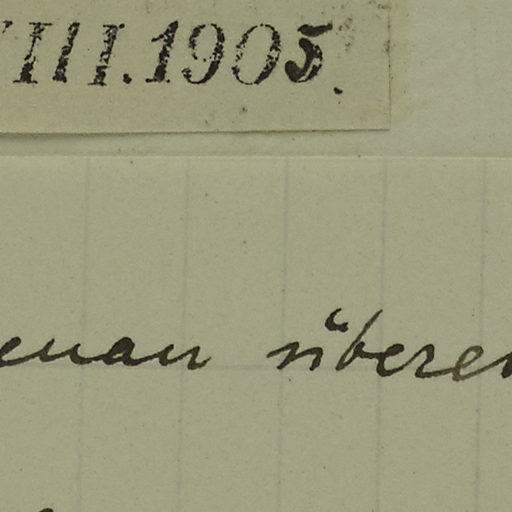 VIII.1905.
enau überei